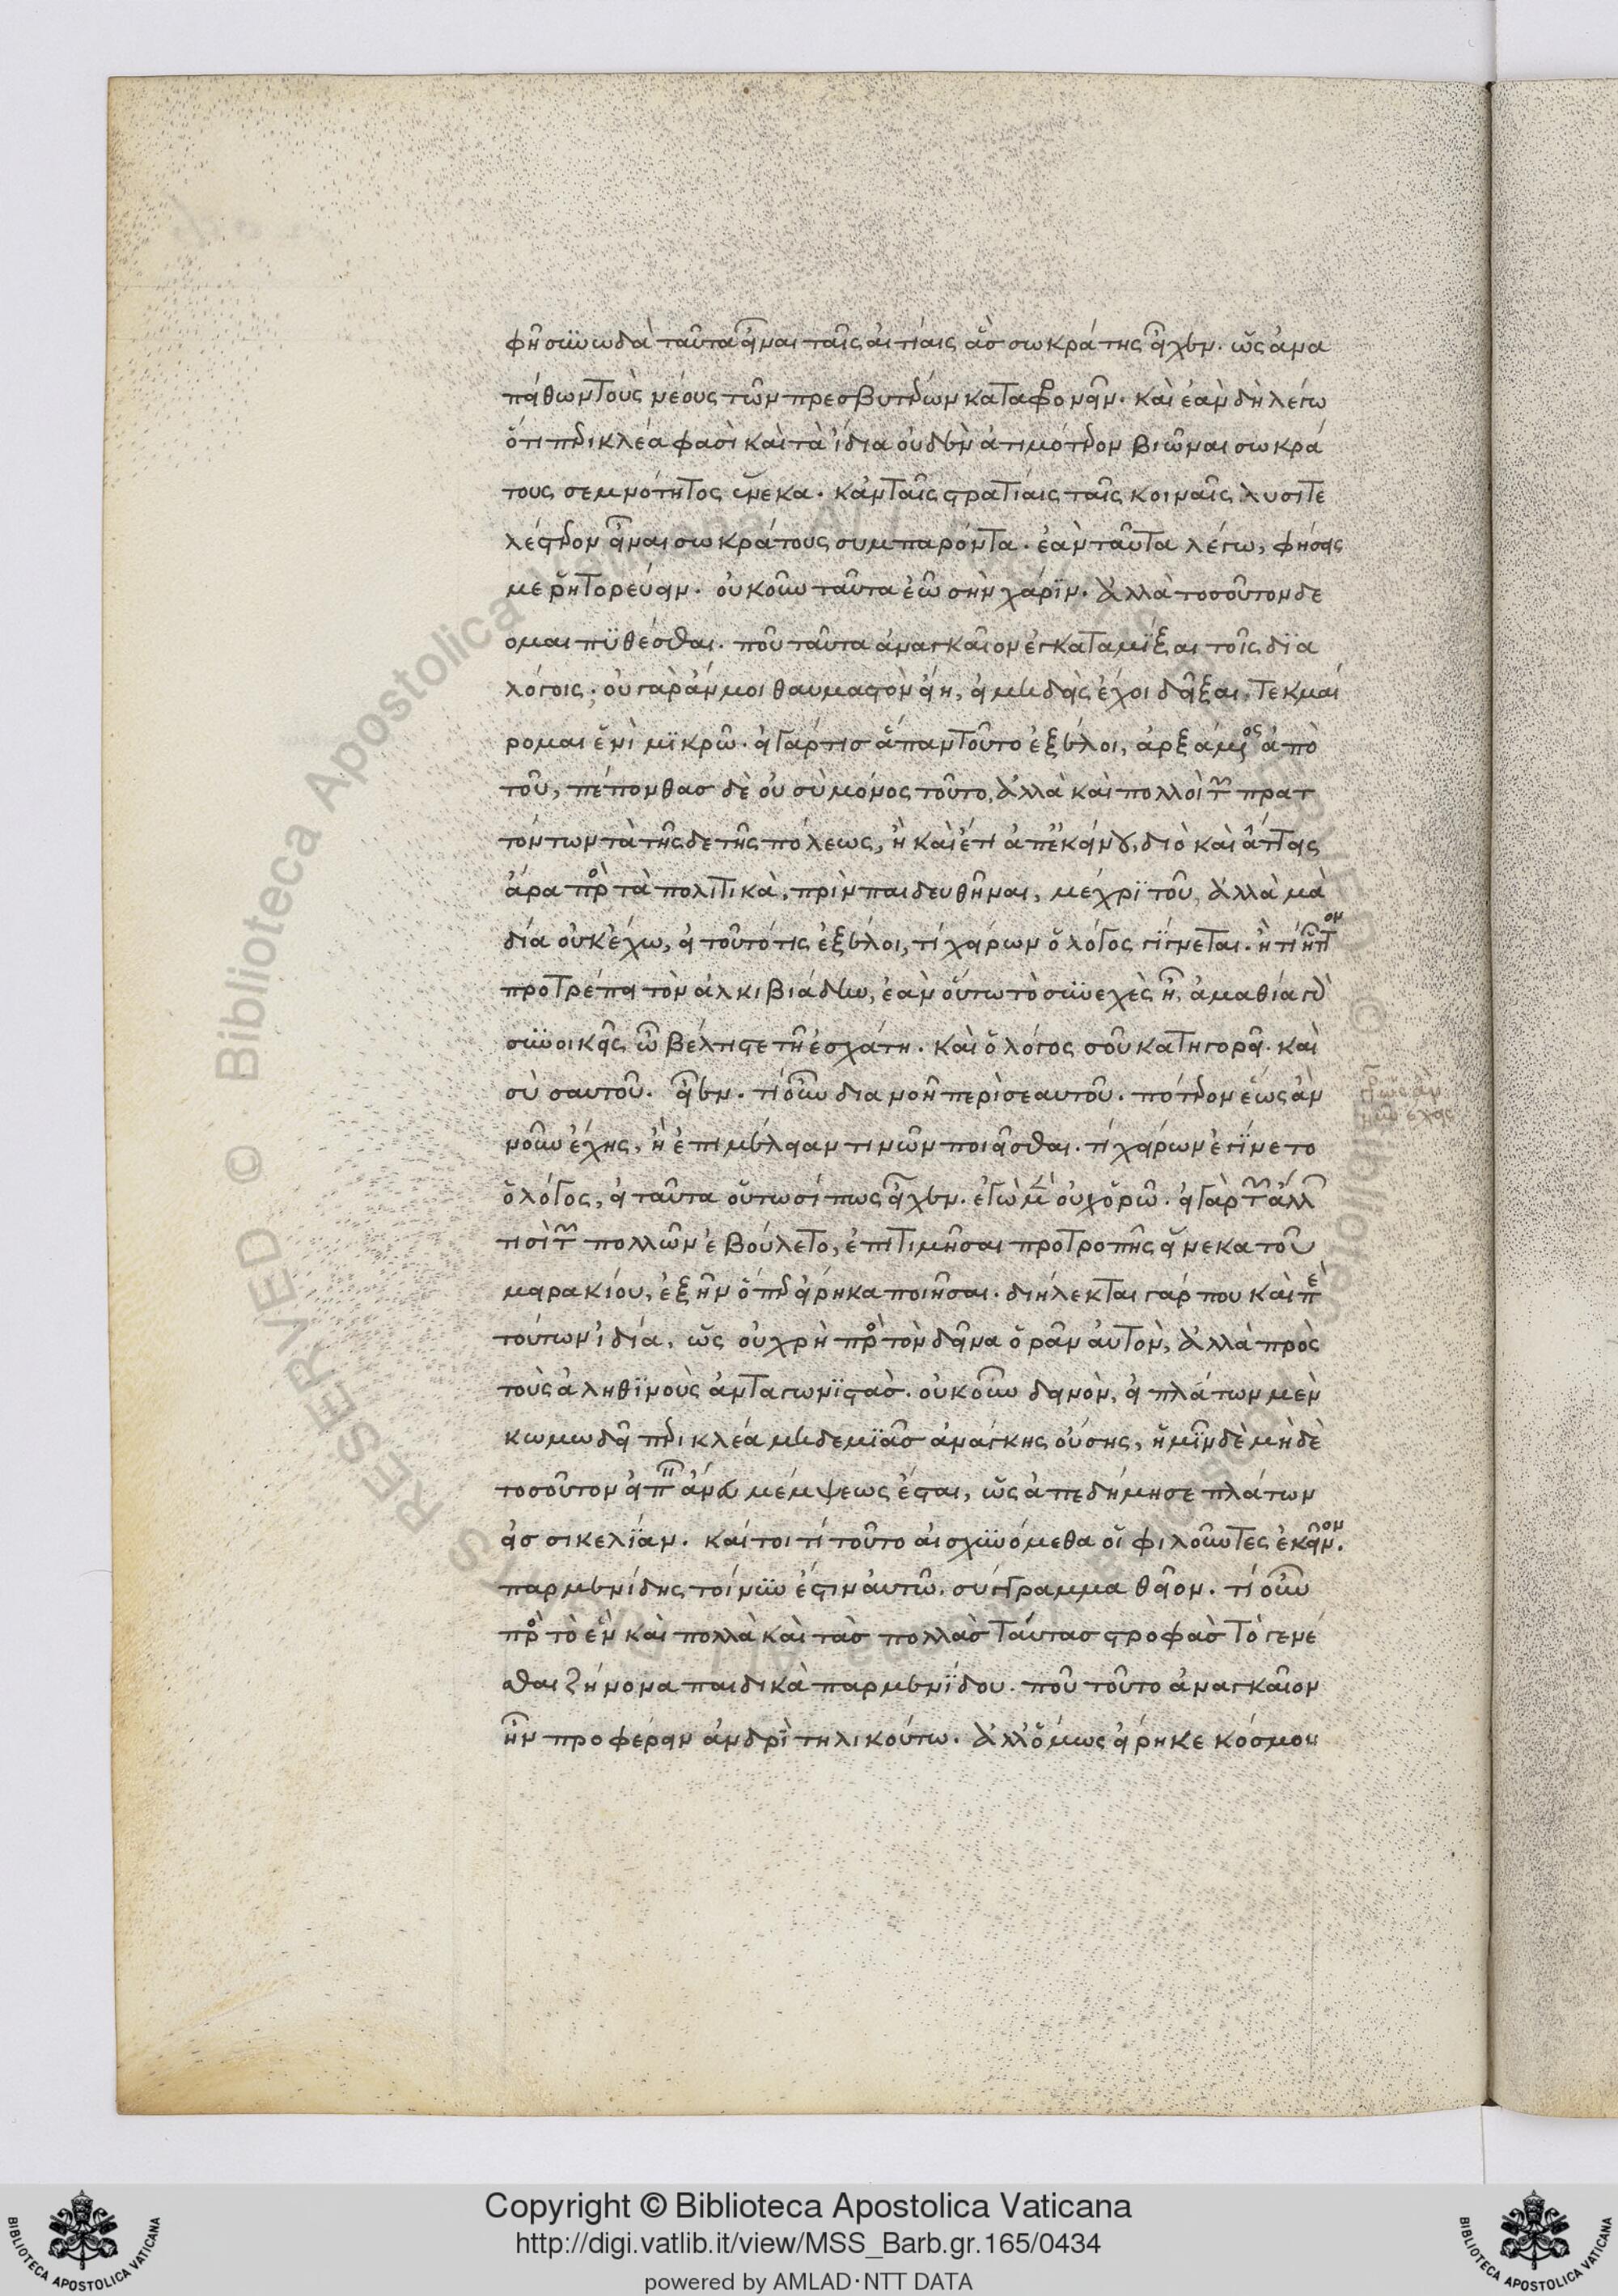 φησὶ συνῳδὰ ταῦτα εἶναι ταῖς αἰτίαις ἃς σωκράτης εἶχεν. ὡς ἀνα
πείθων τοὺς νέους τῶν πρεσβυτέρων καταφρονεῖν. καὶ ἐὰν δὴ λέγω
ὅτι περικλέα φασὶ καὶ τὰ ἴδια οὐδὲν ἀτιμότερον βιῶναι σωκρά
τους σεμνότητος ἕνεκα. κἀν ταῖς στρατιαῖς ταῖς κοιναῖς λυσιτε
λέστερον εἶναι σωκράτους συμπαρόντα. ἐὰν ταῦτα λέγω, φήσεις
με ῥητορεύειν. οὐκοῦν ταῦτα ἐῶ σὴν χάριν. ἀλλὰ τοσοῦτον δέ
ομαι πυθέσθαι. ποῦ ταῦτα ἀναγκαῖον ἐγκαταμίξαι τοῖς δια
λόγοις; οὐ γὰρ ἄν μοι θαυμαστὸν εἴη, εἰ μηδεὶς ἔχοι δεῖξαι. τεκμαί
ρομαι ἑνὶ μικρῷ. εἰ γάρ τις ἅπαν τοῦτο ἐξέλοι, ἀρξάμενος ἀπὸ
τοῦ, πέπονθας δὲ οὐ σὺ μόνος τοῦτο, ἀλλὰ καὶ πολλοὶ τῶν πρατ
τόντων τὰ τῆσδε τῆς πόλεως, ἢ καὶ ἔτι ἀπ' ἐκείνου, διὸ καὶ ἄττεις
ἄρα πρὸς τὰ πολιτικὰ, πρὶν παιδευθῆναι, μέχρι τοῦ, ἀλλὰ μὰ
δία οὐκ ἔχω, εἰ τοῦτό τις ἐξέλοι, τί χείρων ὁ λόγος γίγνεται. ἢ τί ἧττον
προτρέπει τὸν ἀλκιβιάδην, ἐὰν οὕτω τὸ συνεχὲς ᾖ, ἀμαθίᾳ γὰρ
συνοικεῖς ὦ βέλτιστε τῇ ἐσχάτῃ. καὶ ὁ λόγος σοῦ κατηγορεῖ. καὶ
σὺ σαυτοῦ. εἶεν. τί οὖν διανοῇ περὶ σεαυτοῦ. πότερον ἐῶς ἂν
νοῦν ἔχῃς, ἢ ἐπιμέλειάν τινων ποιεῖσθαι. τί χείρων ἐγίνετο
ὁ λόγος, εἰ ταῦτα οὑτωσί πως εἶχεν. ἐγὼ μὲν οὐχ ὁρῶ. εἰ γὰρ τῶν ἄλλ
τισὶ τῶν πολλῶν ἐβούλετο, ἐπιτιμῆσαι προτροπῆς εἵνεκα τοῦ
μειρακίου, ἐξῆν ὅπερ εἴρηκα ποιῆσαι. διήλεκται γάρ που καὶ περὶ
τούτων ἰδίᾳ, ὡς οὐ χρὴ πρὸς τὸν δεῖνα ὁρᾶν αὐτὸν, ἀλλὰ πρὸς
τοὺς ἀληθινοὺς ἀνταγωνιστάς. οὐκοῦν δεινὸν, εἰ πλάτων μὲν
κωμῳδεῖ περικλέα μηδεμιᾶς ἀνάγκης οὔσης, ἡμῖν δὲ μηδὲ
τοσοῦτον εἰπεῖν ἄνευ μέμψεως ἔσται, ὡς ἀπεδήμησε πλάτων
εἰς σικελίαν. καίτοι τί τοῦτο αἰσχυνόμεθα οἱ φιλοῦντες ἐκεῖνον.
παρμενίδης τοίνυν ἐστιν αὐτῷ. σύγγραμμα θεῖον. τί οὖν
πρὸς τὸ ἓν καὶ πολλὰ καὶ τὰς πολλὰς ταύτας στροφὰς τὸ γενέ
σθαι ζήνωνα παιδικὰ παρμενίδου. ποῦ τοῦτο ἀναγκαῖον
ἦν προφέρειν ἀνδρὶ τηλικούτῳ. ἀλλ' ὅμως εἴρηκε κόσμον
Copyright © Biblioteca Apostolica Vaticana
http://digi.vatlib.it/view/MSS_Barb.gr.165/0434
powered by AMLAD·NTT DATA